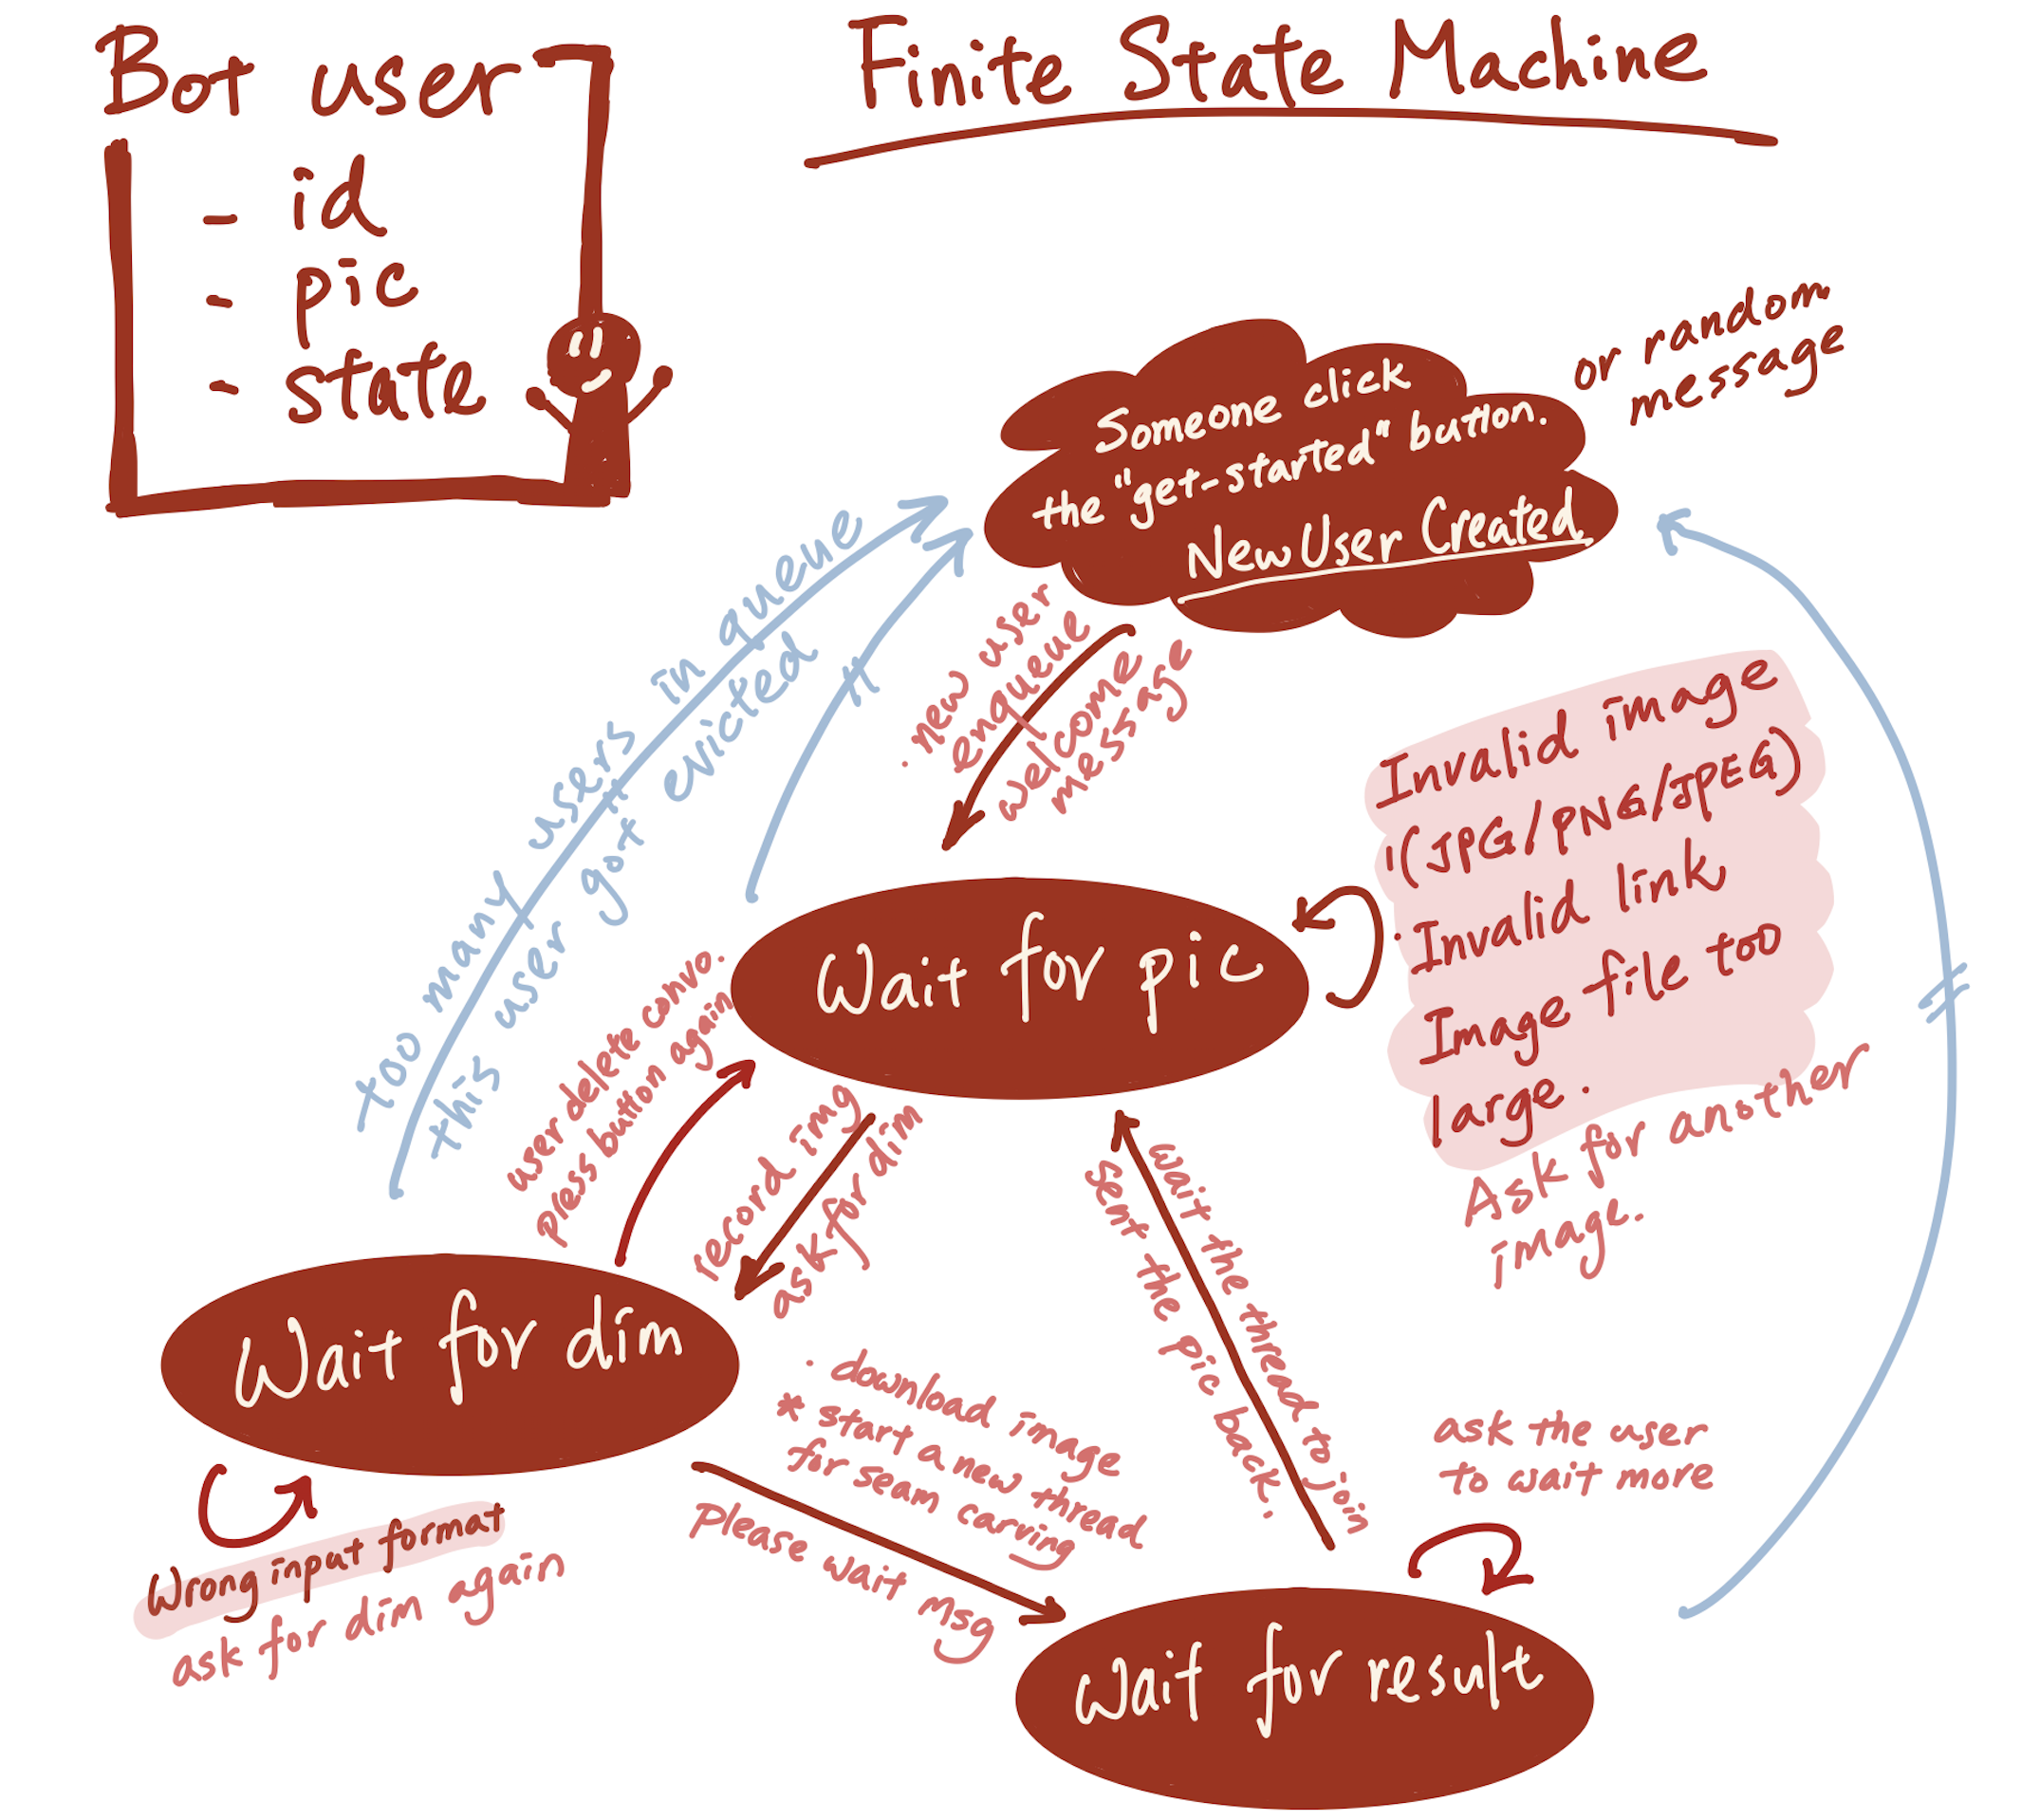 Bot user
- id
- pic
- state
Finite State Machine
or random
message
Someone click
the "get-started" button.
New User Created
too many users in queue
this user got evicted
· new user
enqueue
welcome
message
Invalid image
"(JPG/PNG/JPEG)
· Invalid link
Image file too
large.
Ask for another
image.
Wait for pic
user delete convo.
press button again
record img
ask for dim
wait the thread to join
sent the pic back.
Wait for dim
Wrong input format
ask for dim again
· download image
* start a new thread
for seam carving
Please wait msg
ask the user
to wait more
Wait for result